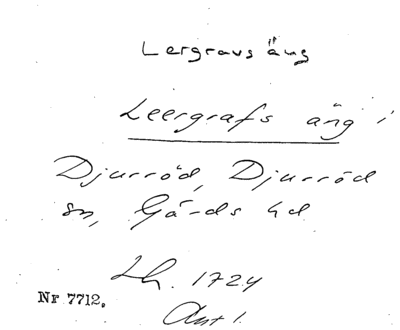 Lergravs äng
Leergrafs äng i
Djurröd, Djurröd
sn, Gärds hd
Lh. 1724
Nr 7712.
Akt 1.